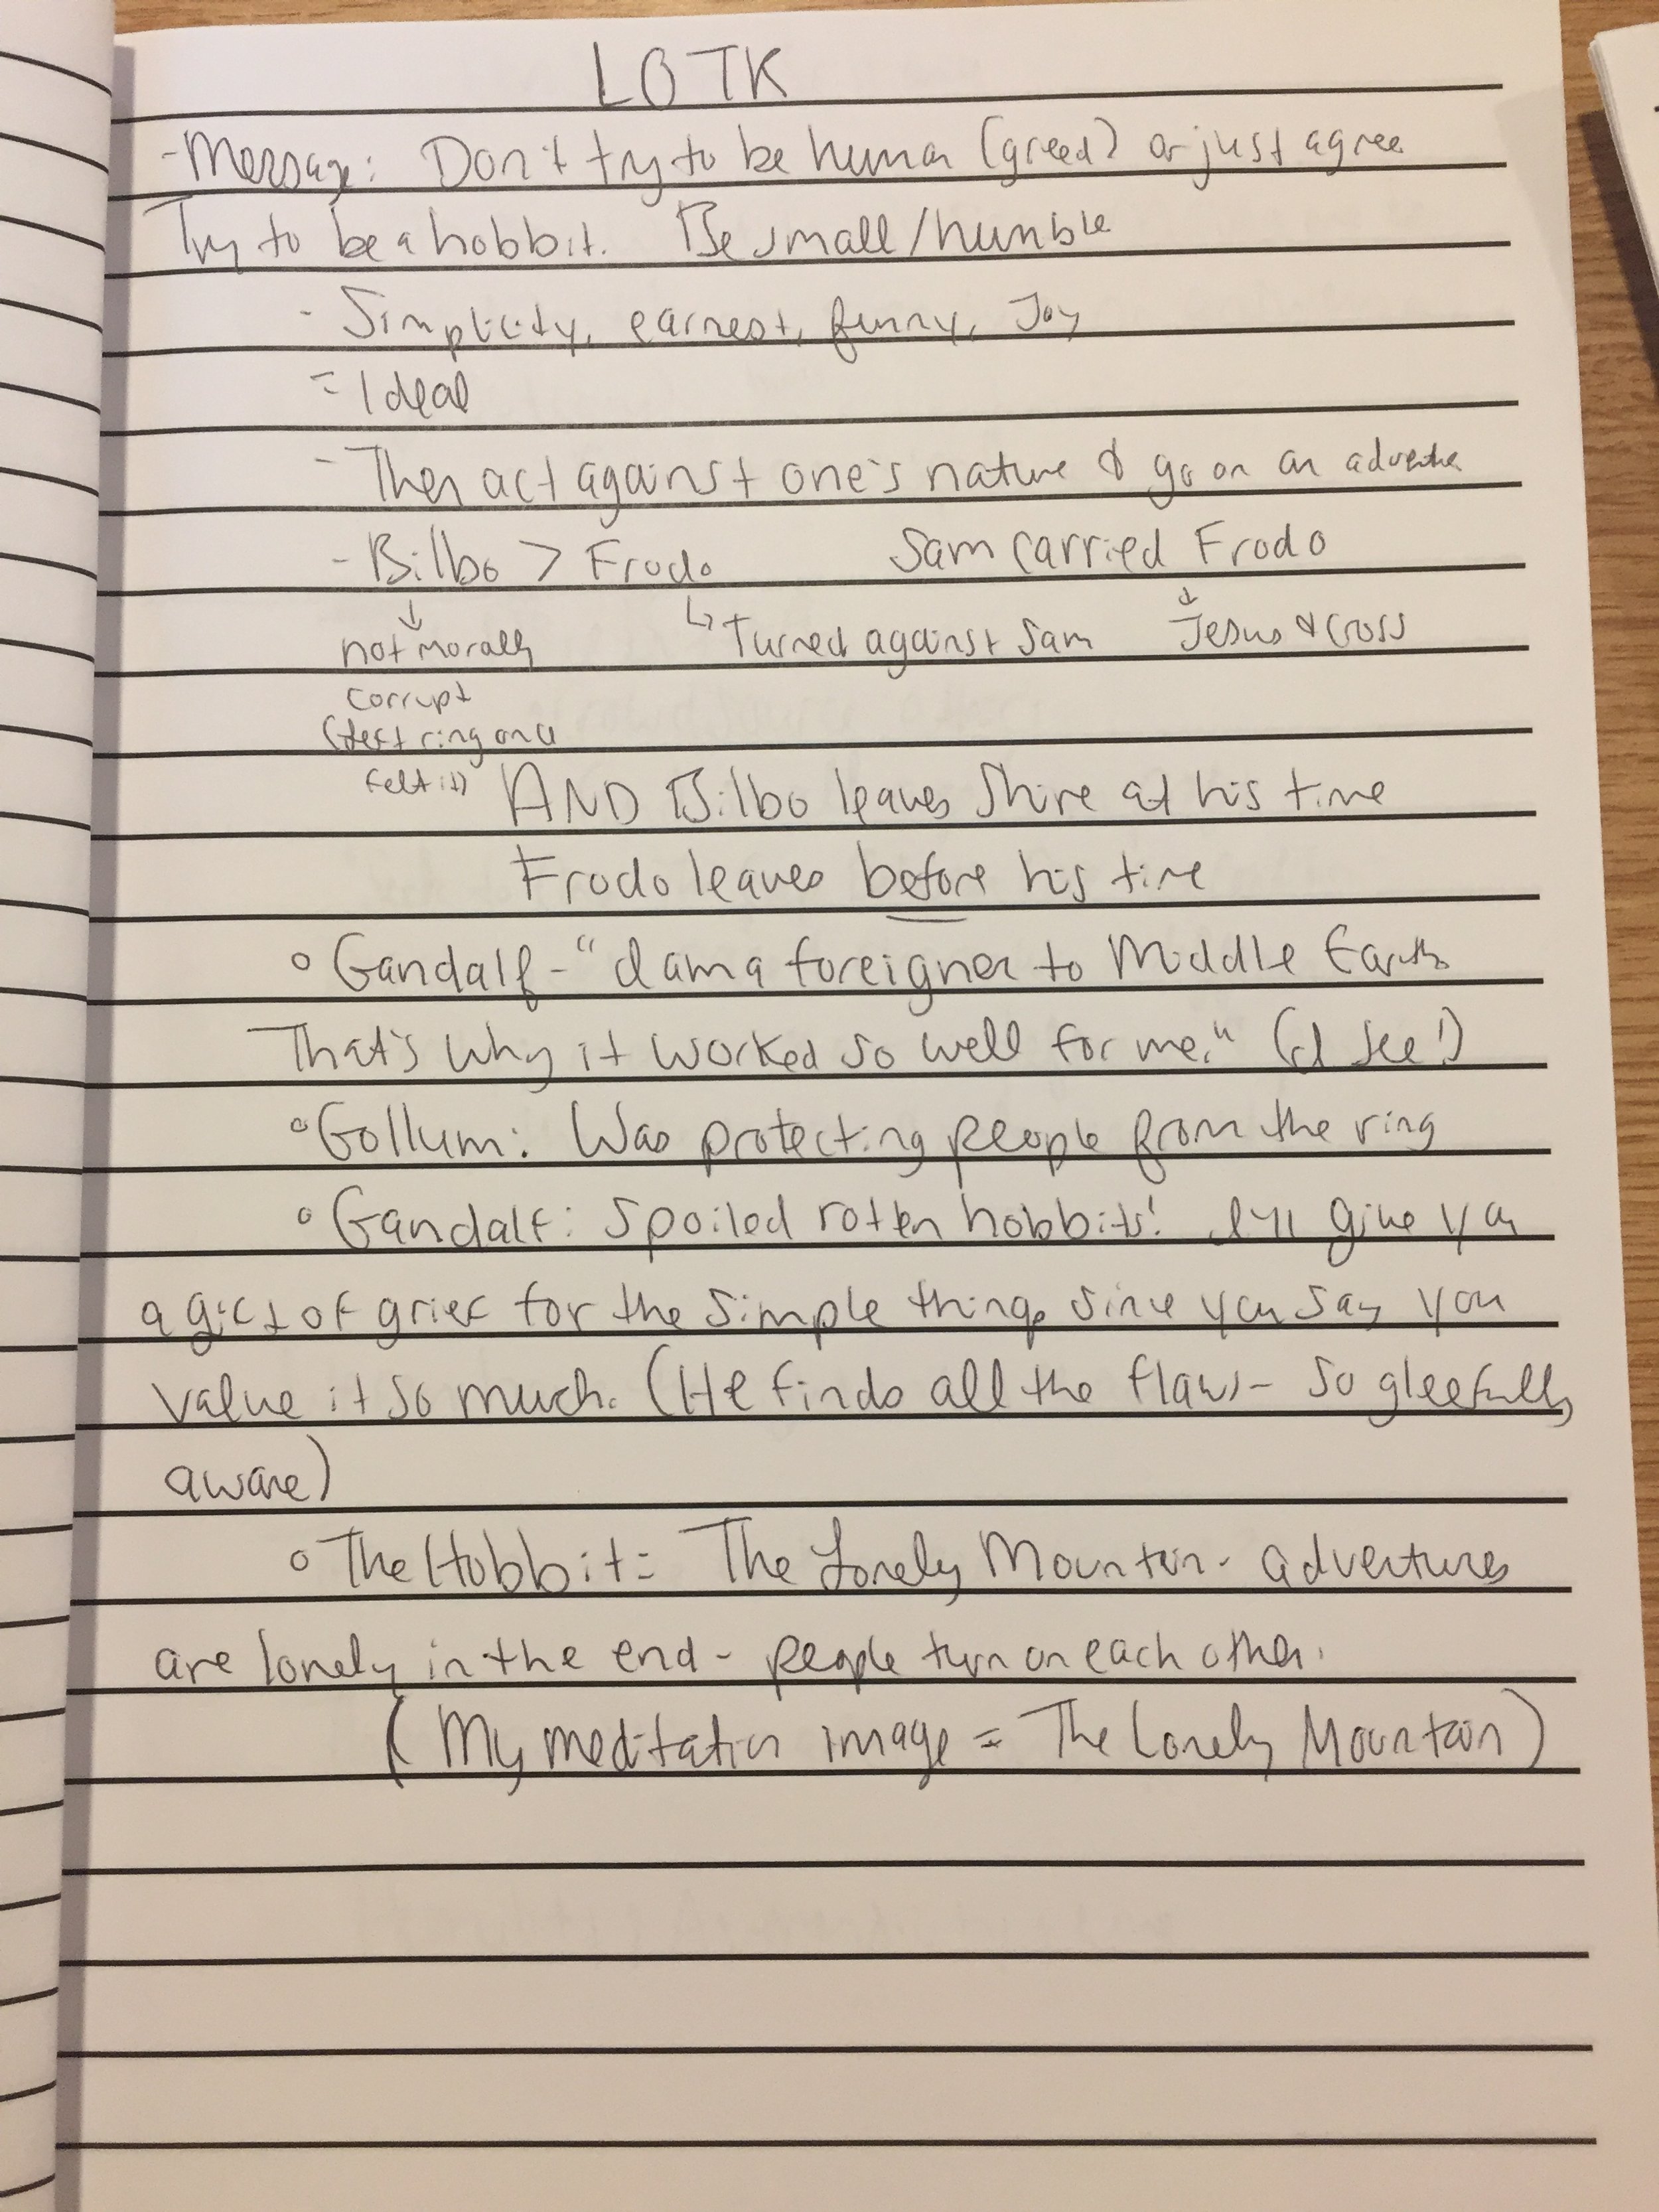 LOTR
- Message: Don't try to be human (greed) or just agree
Try to be a hobbit. Be small/humble
- Simplicity, earnest, funny, Joy
= Ideal
- Then act against one's nature & go on an adventure
- Bilbo > Frodo Sam carried Frodo
↓ ↳ Turned against Sam ↓ Jesus & cross
not morally
corrupt
(left ring once
felt it)
AND Bilbo leaves Shire at his time
Frodo leaves before his time
○ Gandalf - "I am a foreigner to Middle Earth
That's why it worked so well for me." (I see!)
○ Gollum: Was protecting people from the ring
○ Gandalf: Spoiled rotten hobbits! I'll give you
a gift of grief for the simple things since you say you
value it so much. (He finds all the flaws - so gleefully
aware)
○ The Hobbit: The Lonely Mountain - adventures
are lonely in the end - people turn on each other.
(My meditation image = The Lonely Mountain)